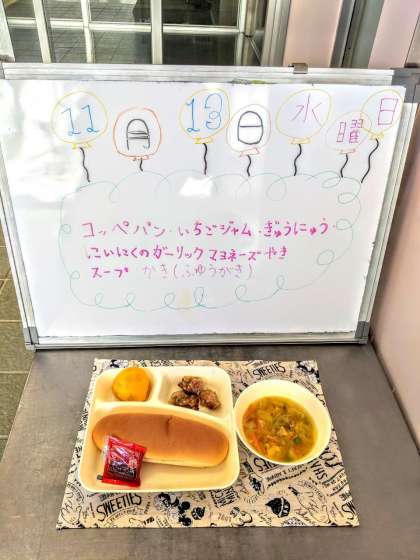 11月13日水曜日
コッペパン・いちごジャム・ぎゅうにゅう・
にいにくのガーリックマヨネーズやき
スープ かき(ふゆうがき)
SWEETIES
SWEETIES